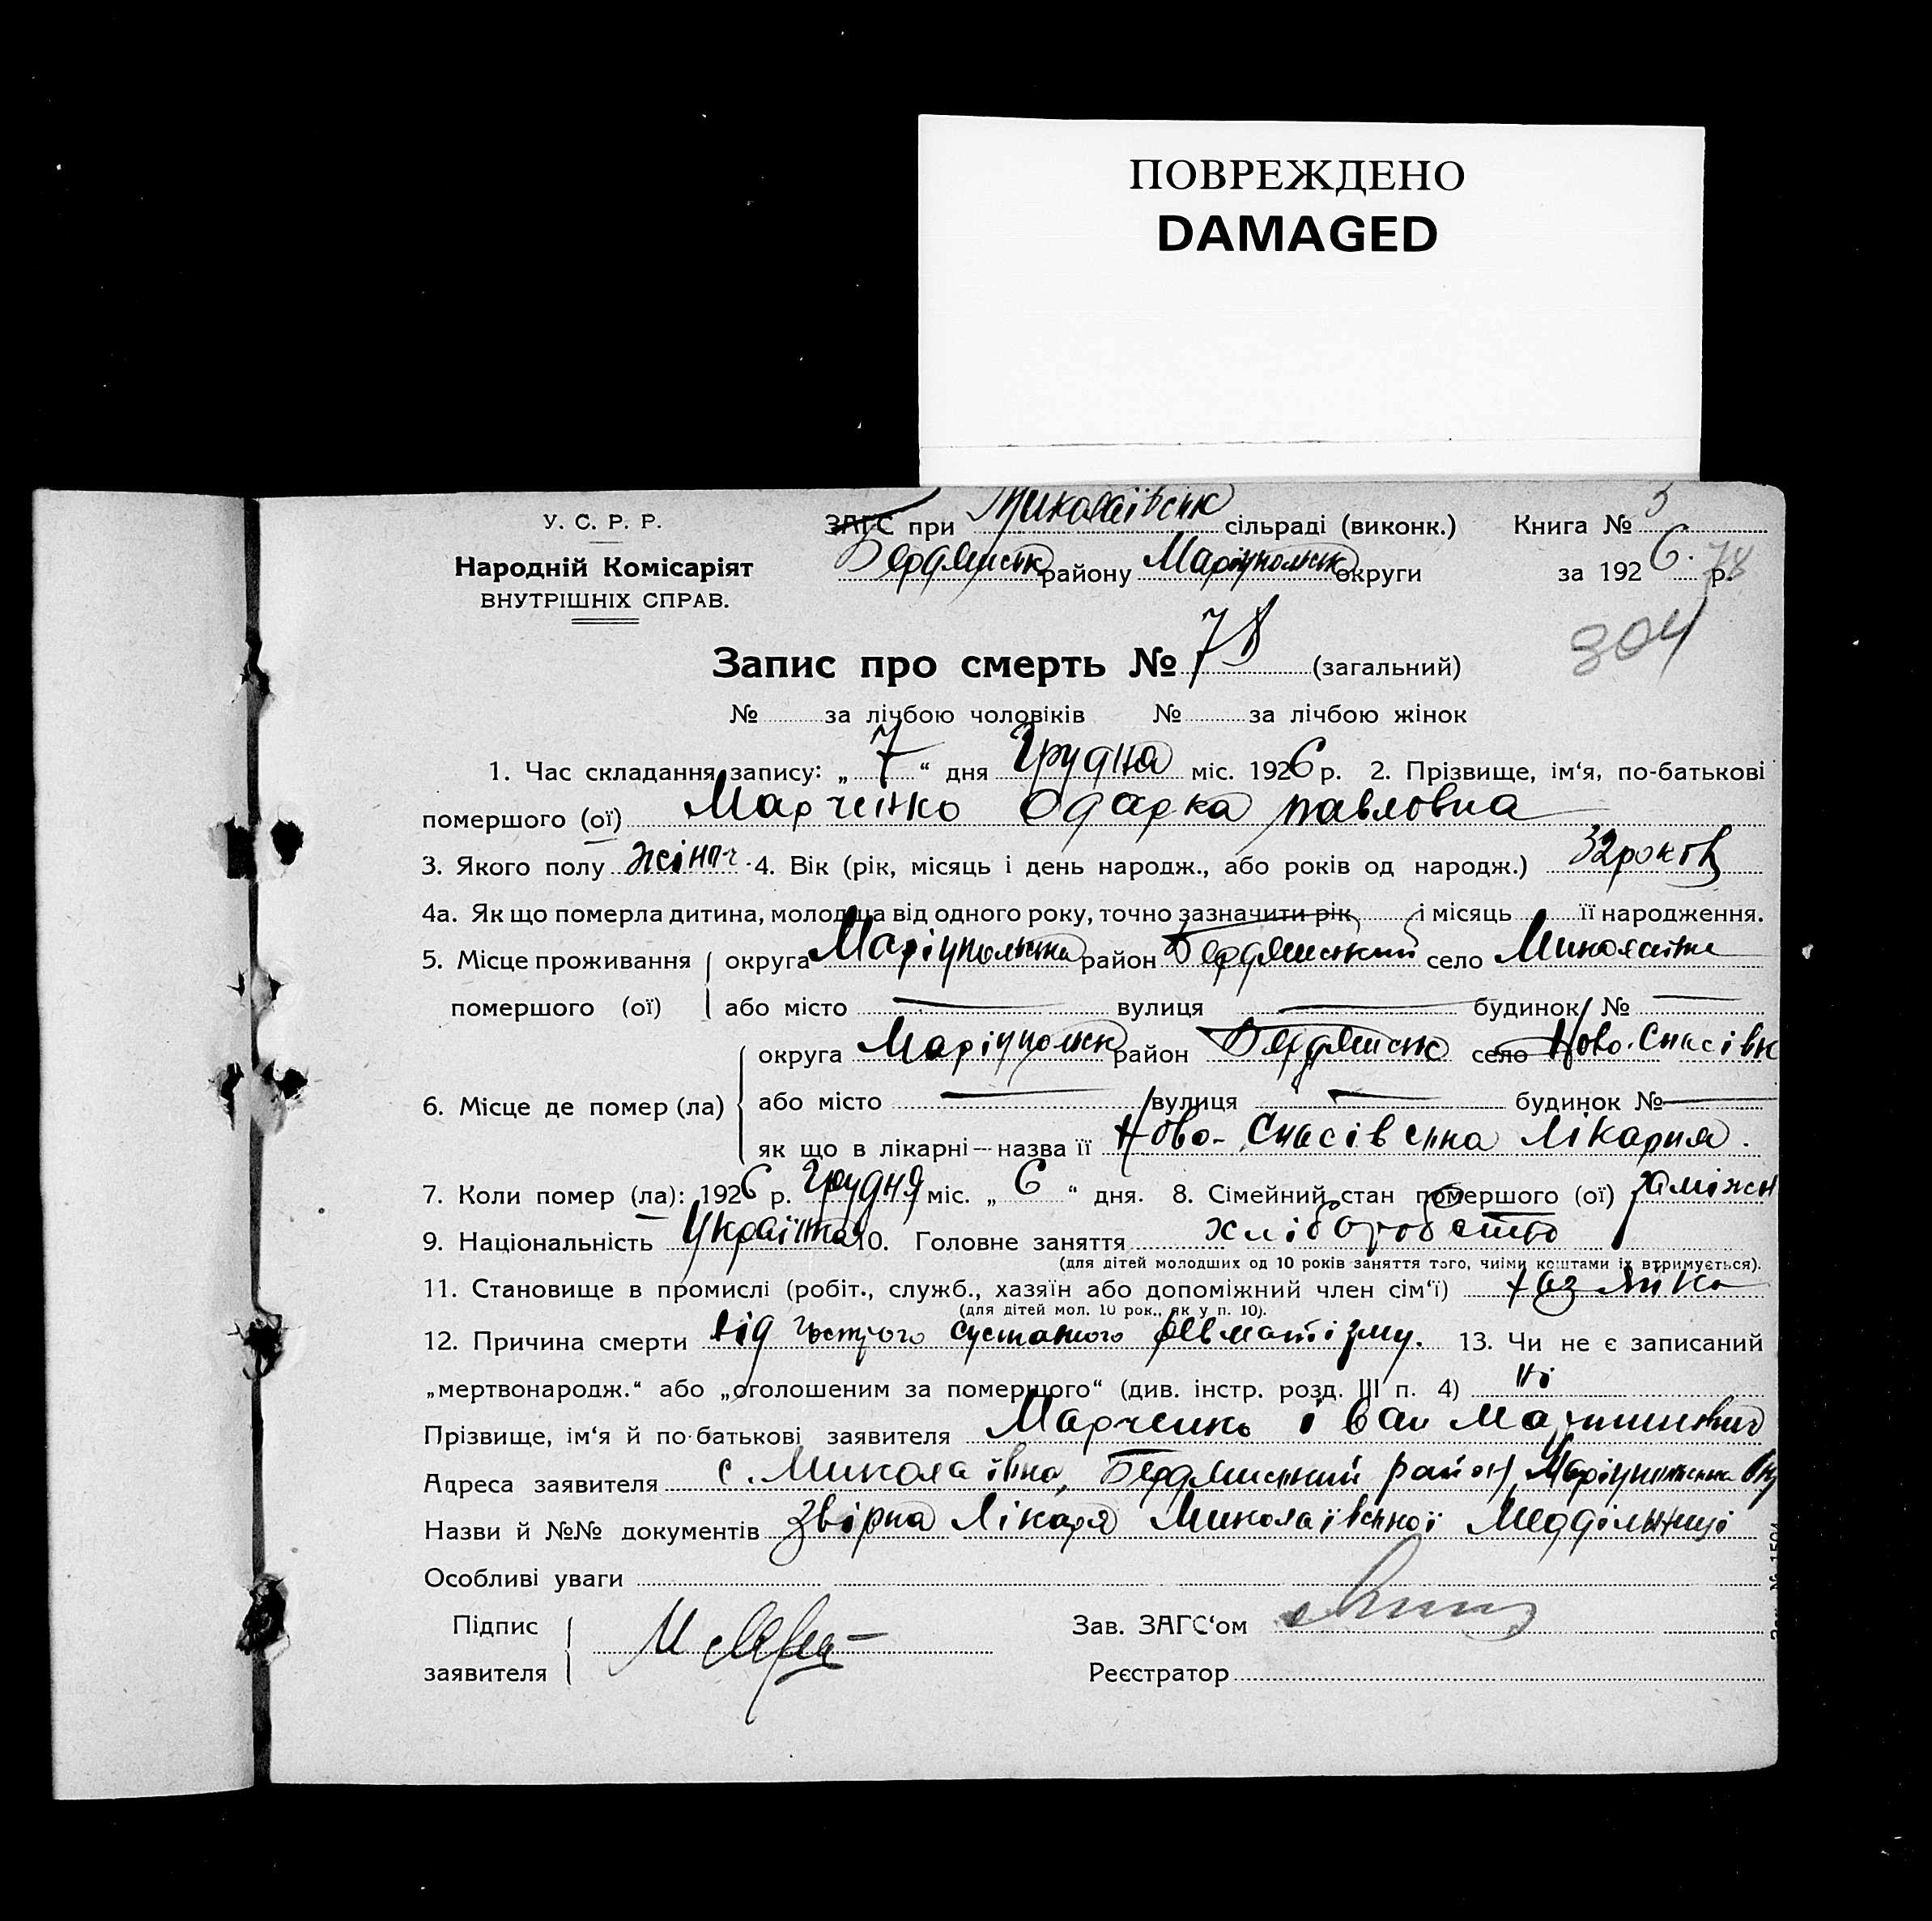 ПОВРЕЖДЕНО
DAMAGED
У. С. Р. Р.
Народній Комісаріят
ВНУТРІШНІХ СПРАВ.
ЗАГС при Миколаївськ сільраді (виконк.) Книга № 3
Бердянськ району Маріупольськ округи за 1926 р. 78
304
Запис про смерть № 78 (загальний)
№ за лічбою чоловіків № за лічбою жінок
1. Час складання запису: „7“ дня Грудня міс. 1926 р. 2. Прізвище, ім‘я, по-батькові
помершого (ої) Марченко Одарка Павловна
3. Якого полу жіноч. 4. Вік (рік, місяць і день народж., або років од народж.) 32 років
4а. Як що померла дитина, молодша від одного року, точно зазначити рік і місяць її народження.
5. Місце проживання округа Маріупольська район Бердянський село Миколаївка
помершого (ої) або місто — вулиця — будинок № —
округа Маріупольськ район Бердянськ село Ново-Спасівк
6. Місце де помер (ла) або місто — вулиця — будинок № —
як що в лікарні — назва її Ново-Спасівська лікарня.
7. Коли помер (ла): 1926 р. Грудня міс. „6“ дня. 8. Сімейний стан помершого (ої) заміжн
9. Національність Українка 10. Головне заняття хліборобство
(для дітей молодших од 10 років заняття того, чиїми коштами їх втримується).
11. Становище в промислі (робіт., служб., хазяїн або допоміжний член сім‘ї) хазяйка
(для дітей мол. 10 рок., як у п. 10).
12. Причина смерти від гострого суставного ревматізму. 13. Чи не є записаний
„мертвонародж.“ або „оголошеним за помершого“ (див. інстр. розд. III п. 4) ні
Прізвище, ім‘я й по-батькові заявителя Марченко Іван Мартинович
Адреса заявителя с. Миколаївка, Бердянський район Маріупольська Окр
Назви й №№ документів Звірка лікаря Миколаївської Меддільниці
Особливі уваги
Підпис
заявителя
Зав. ЗАГС‘ом
Реєстратор